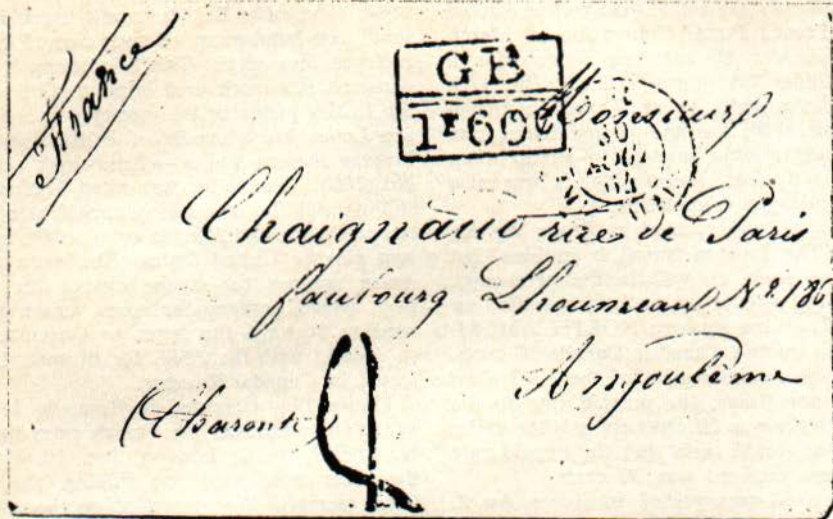 France
GB
1F60c
Monsieur
Chaignaud rue de Paris
faubourg Lhoumeau Nº 186
Angoulême
(Charente)